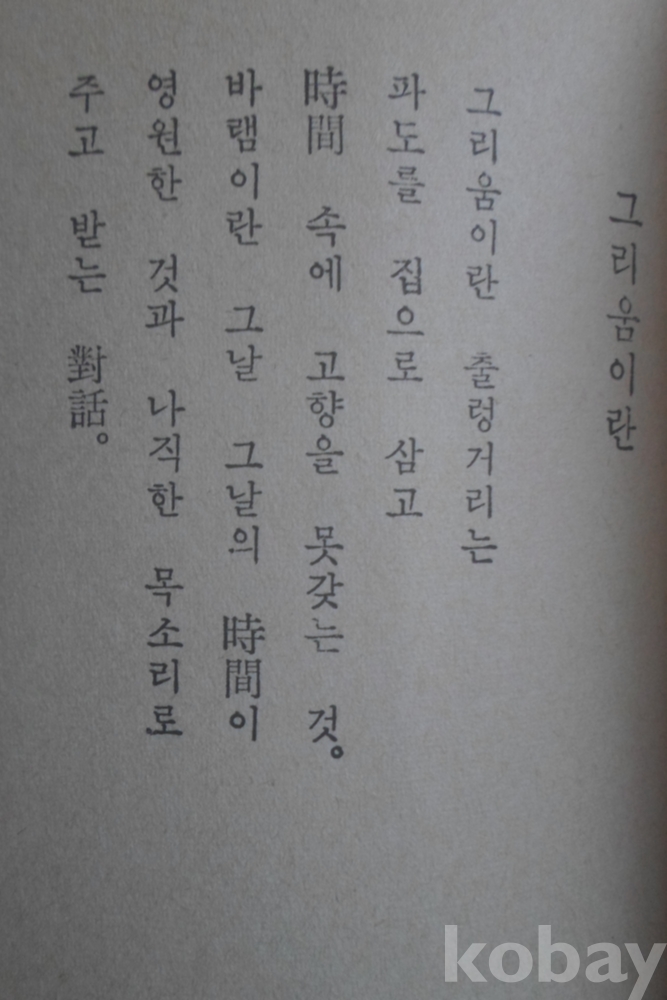 그리움이란
그리움이란 출렁거리는
파도를 집으로 삼고
時間 속에 고향을 못갖는 것。
바램이란 그날 그날의 時間이
영원한 것과 나직한 목소리로
주고 받는 對話。
kobay